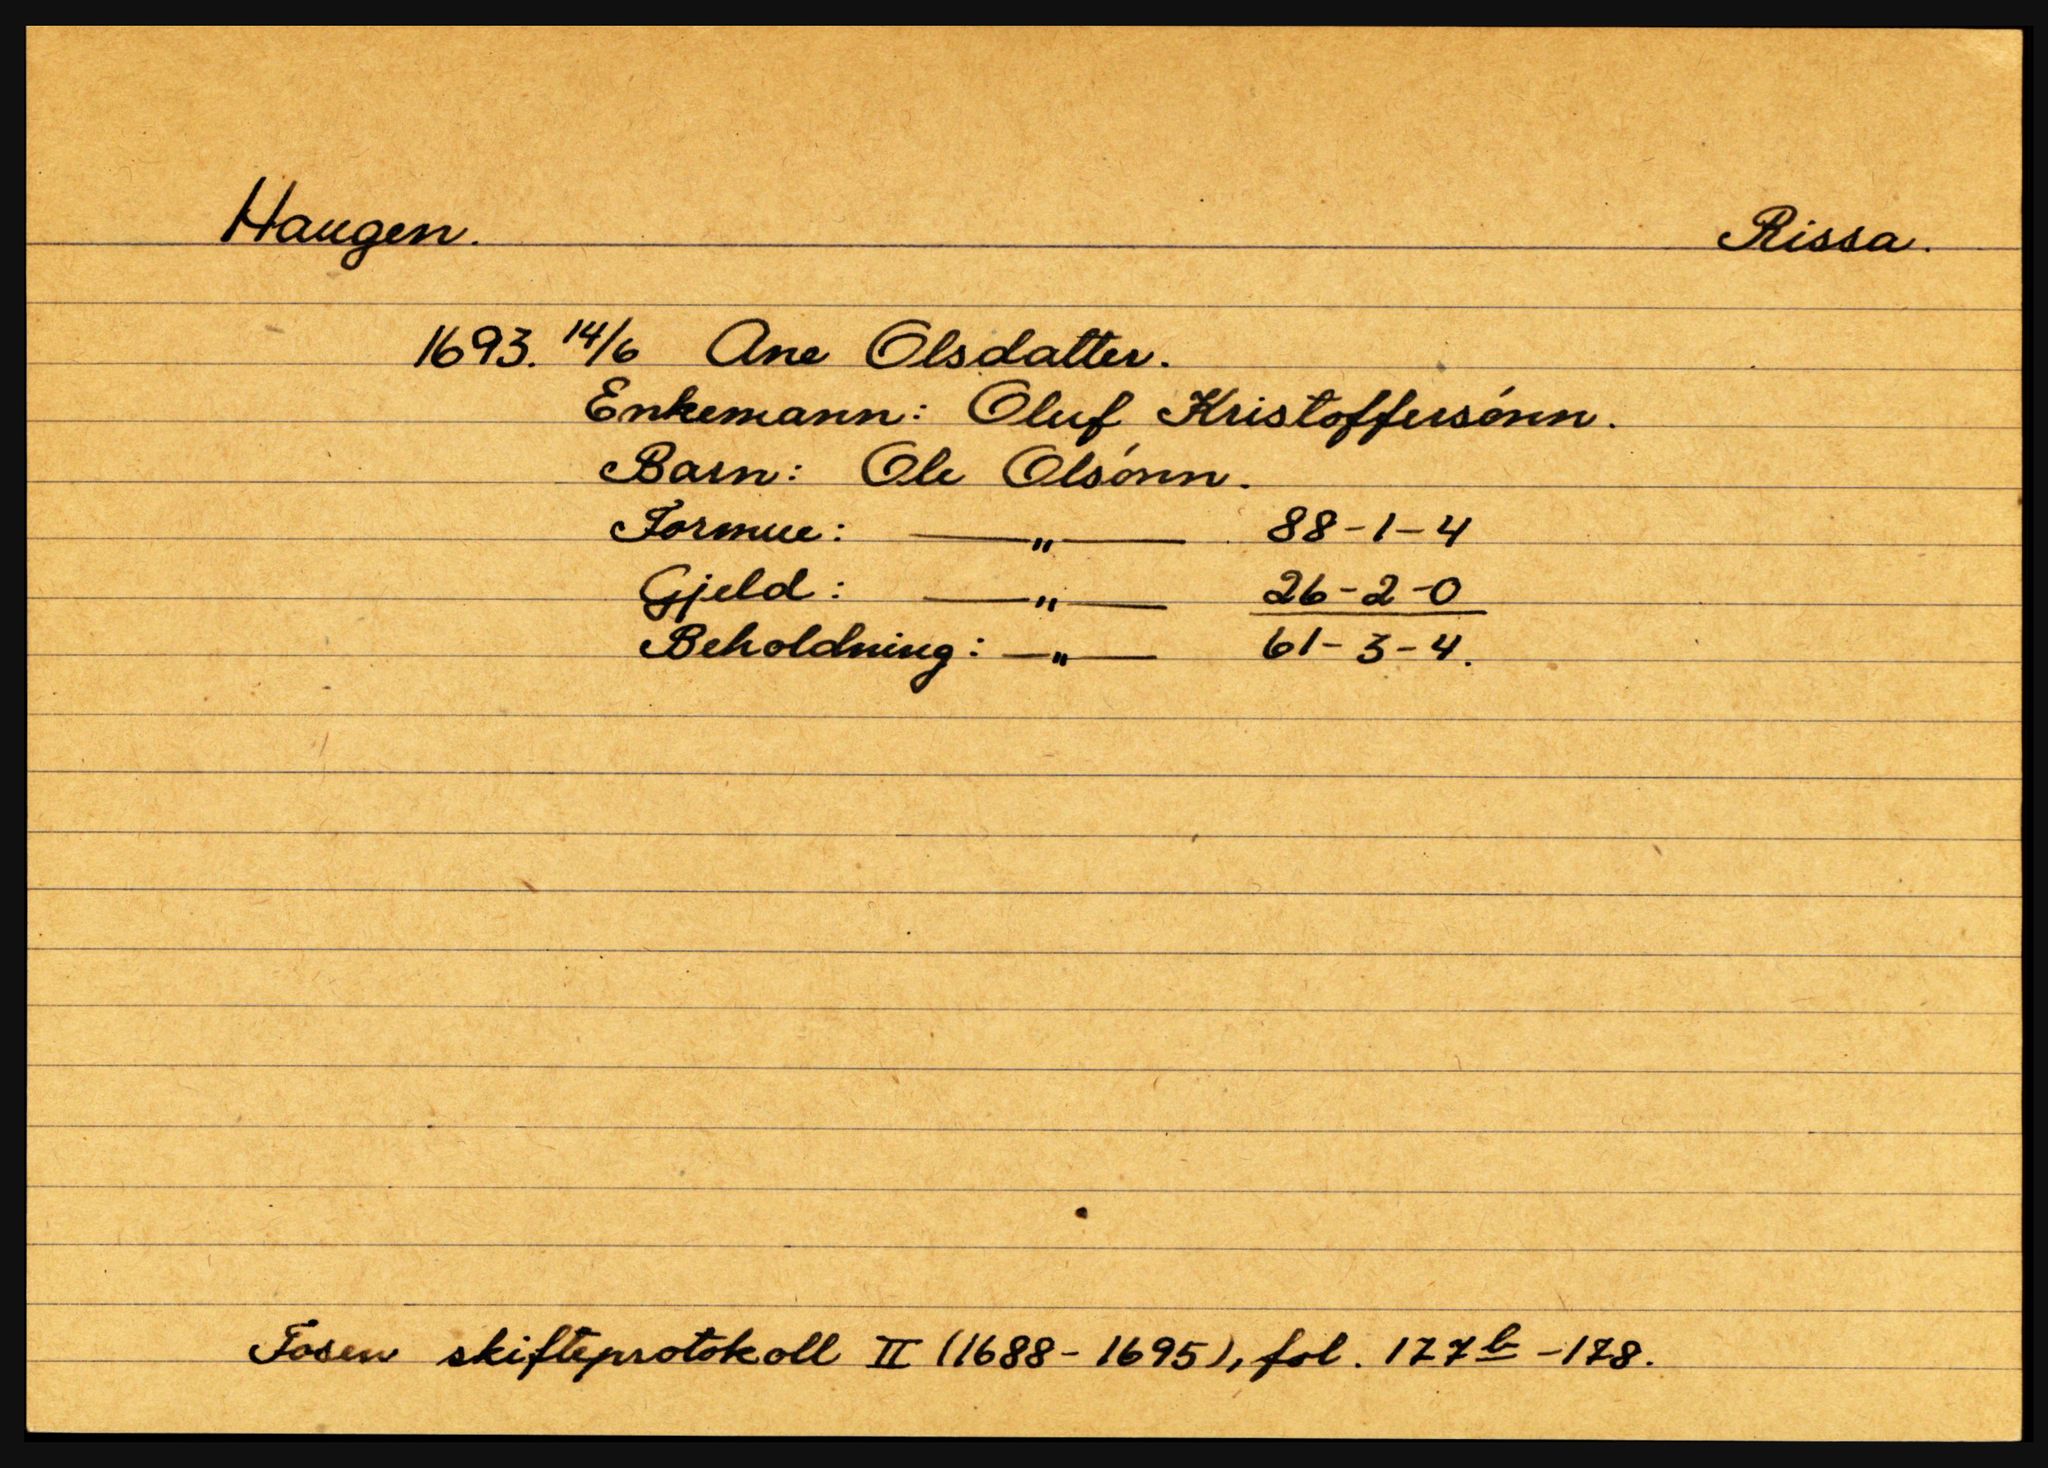 Haugen. Rissa.
1693. 14/6 Ane Olsdatter.
Enkemann: Oluf Kristoffersónn.
Barn: Ole Olsónn.
Formue: —„— 88-1-4
Gjeld: —„— 26-2-0
Beholdning: —„— 61-3-4.
Fosen skifteprotokoll II (1688-1695), fol. 177b-178.